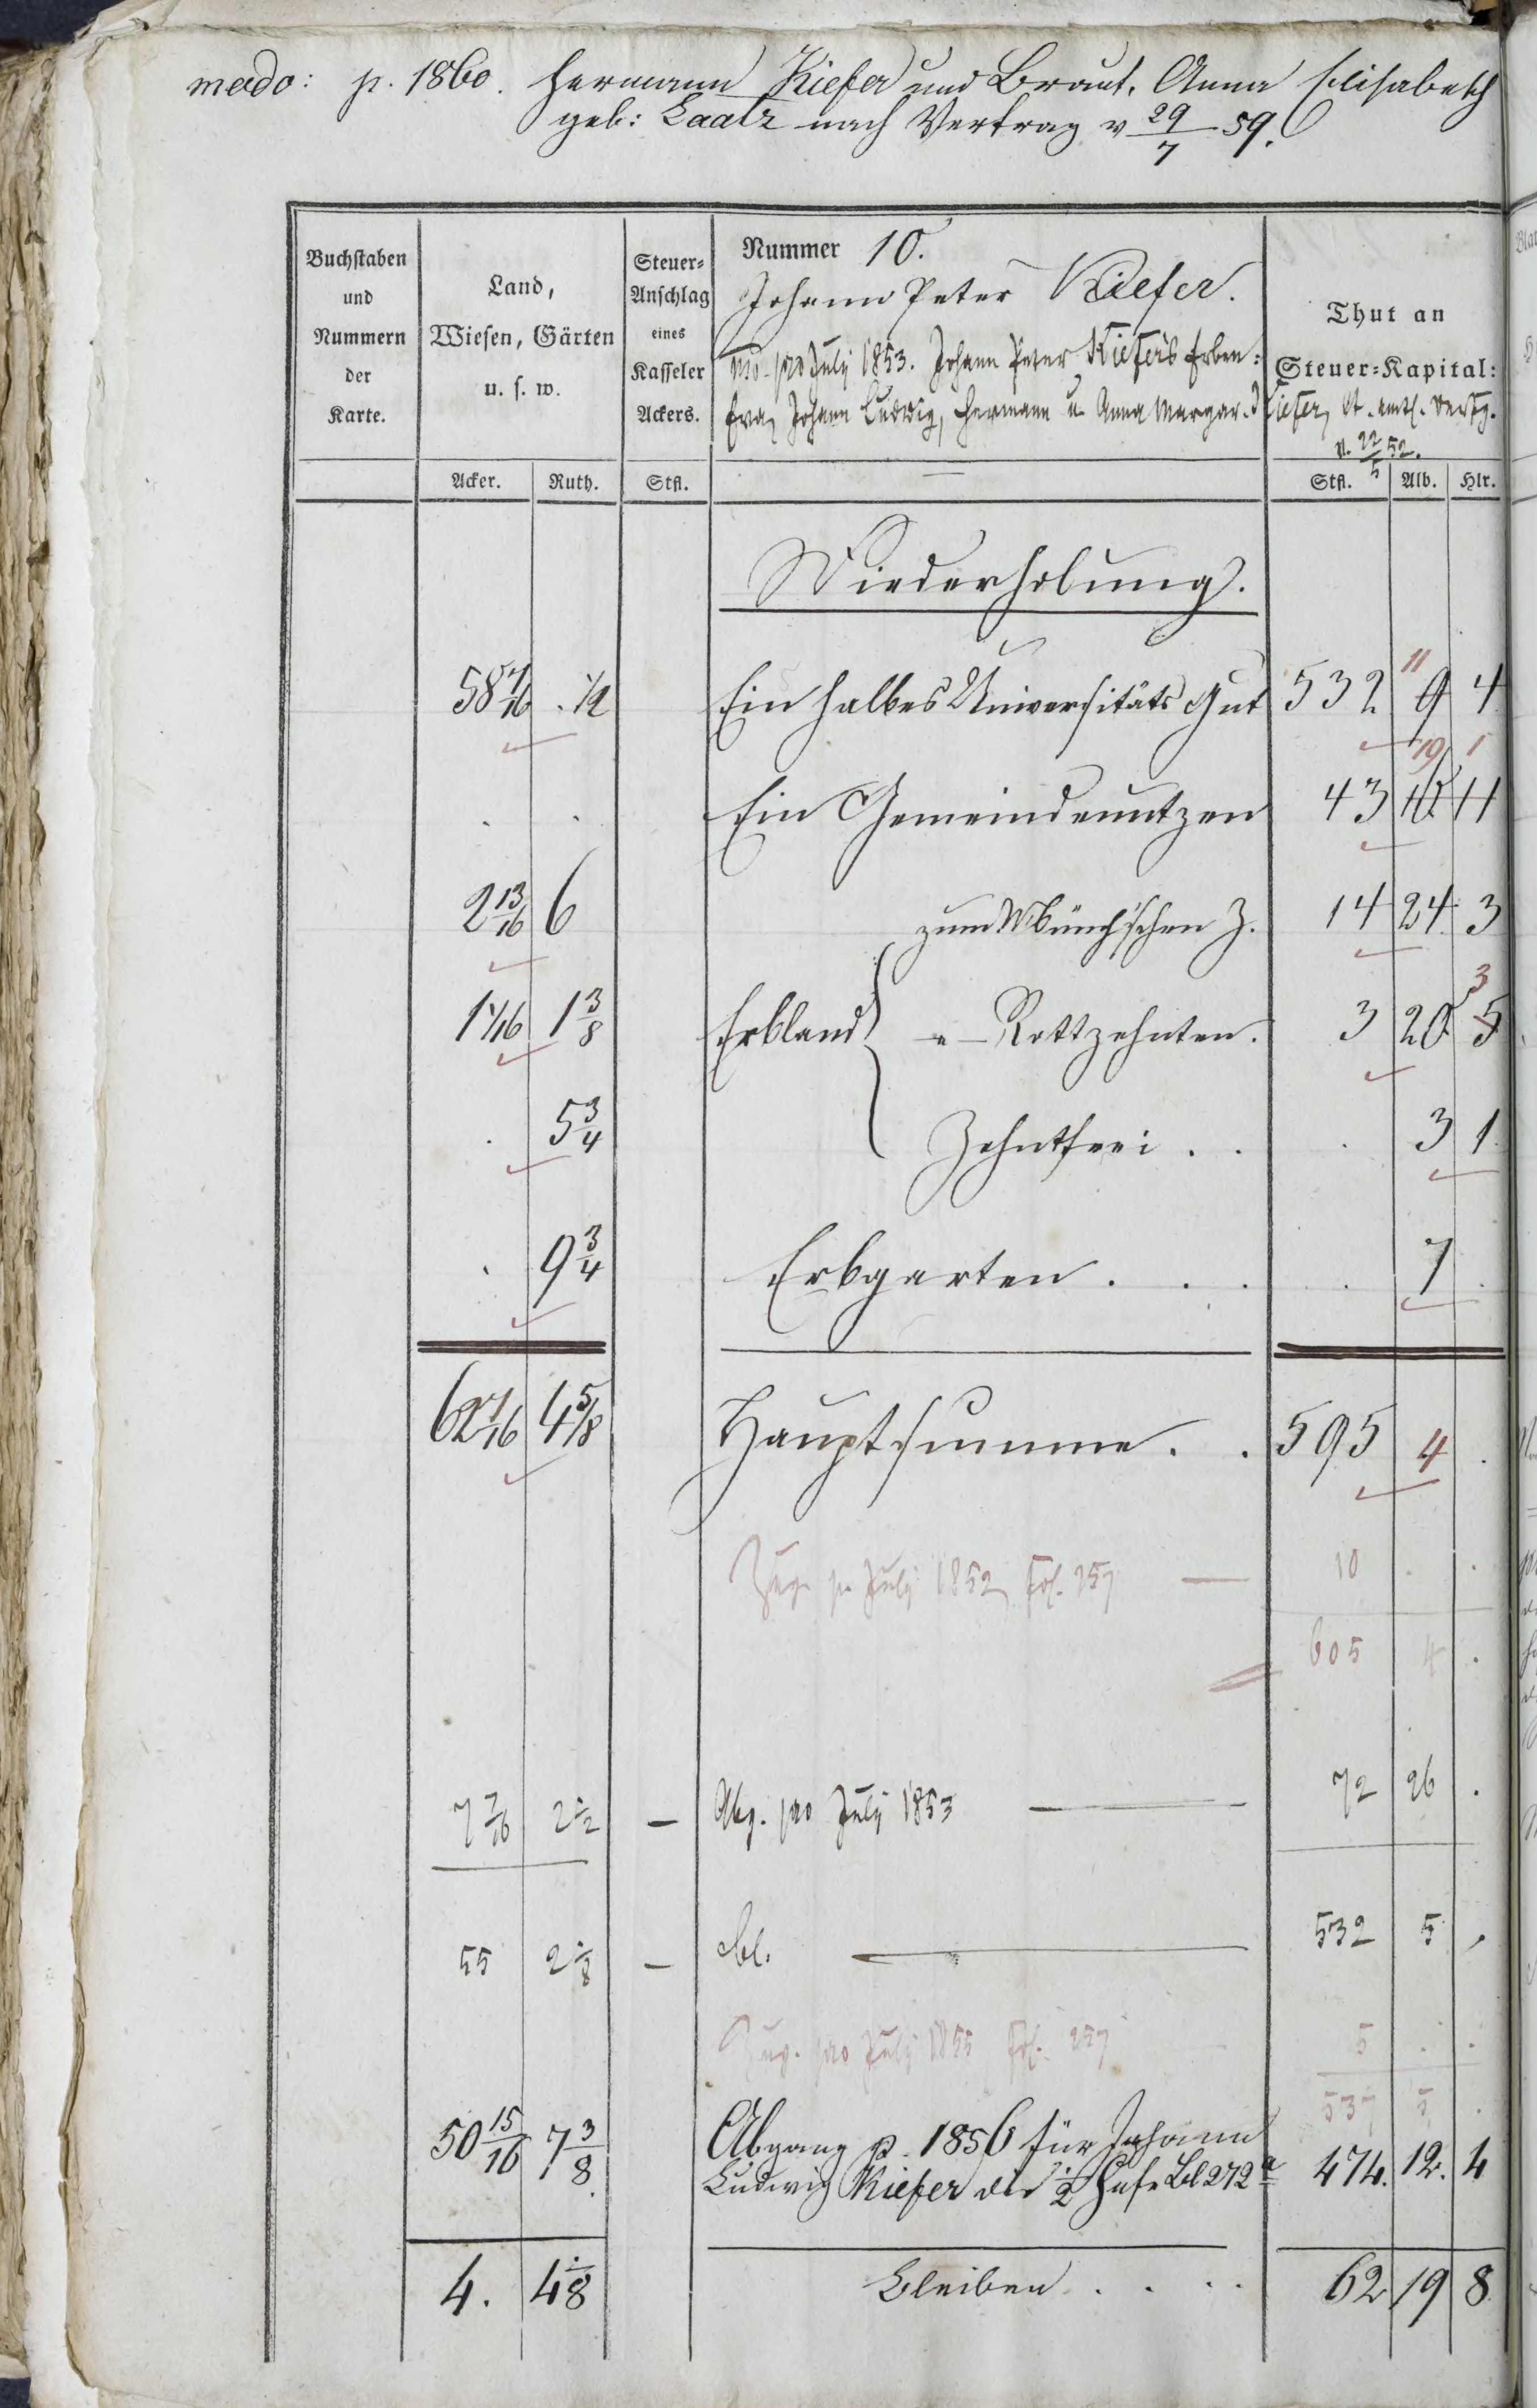 modo: p. 1860. Hermann Kiefer und Braut, Anna Elisabeth
geb: Laatz nach Vertrag v 29/7 59.
Buchstaben
und
Nummern
der
Karte.
Land,
Wiesen, Gärten
u. s. w.
Steuer-
Anschlag
eines
Kasseler
Ackers.
Nummer 10.
Johann Peter Kiefer.
mo. pro July 1853. Johann Peter Kiefer's Erben:
Eva, Johann Ludwig, Hermann u. Anna Margar. Kiefer, lt. amtl. Verfg.
v. 22/5 52.
Thut an
Steuer-Kapital:
Acker. Ruth. Stfl. Stfl. Alb. Hlr.
Wiederholung.
58 7/16 . 1/2 Ein halbes Universitäts Gut 532 11 9 4
. . Ein Gemeindenutzen 43 19 1 11
2 13/16 6 zum Münch'schen Z. 14 24 3
1 1/16 1 3/8 Erbland " Rottzehnten. 3 20 3 5
. 5 3/4 Zehntfrei . . . 3 1
. 9 3/4 Erbgarten . . . . 7 .
62 7/16 4 5/8 Hauptsumme . . 595 4 .
Zug. p. July 1852 Fol. 257 — 10 . .
605 4 .
7 7/16 2 1/2 — Abg. pro July 1853 — 72 26 .
55 2 1/8 — bl. — 532 5 .
Zug. pro July 1855 Fol. 257 5 . .
537 5 .
50 15/16 7 3/8 Abgang p. 1856 für Johann
Ludwig Kiefer die 1/2 Hufe Bl 272 a 474. 12. 4
4. 4 1/8 Bleiben . . . . 62 19 8